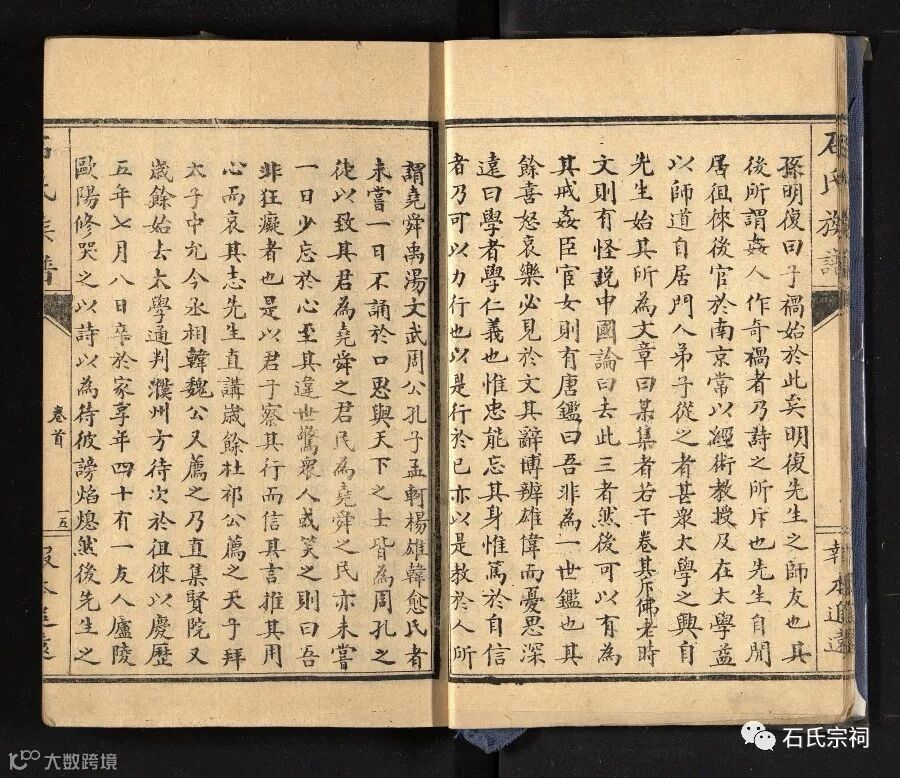 孫明復曰子禍始於此矣明復先生之師友也其
後所謂姦人作奇禍者乃詩之所斥也先生自閒
居徂徠後官於南京常以經術教授及在太學益
以師道自居門人弟子從之者甚衆太學之興自
先生始其所為文章曰某集者若干卷其斥佛老時
文則有怪說中國論曰去此三者然後可以有為
其戒姦臣宦女則有唐鑑曰吾非為一世鑑也其
餘喜怒哀樂必見於文其辭博辨雄偉而憂思深
遠曰學者學仁義也惟忠能忘其身惟篤於自信
者乃可以力行也以是行於已亦以是教於人所
謂堯舜禹湯文武周公孔子孟軻楊雄韓愈氏者
未嘗一日不誦於口思與天下之士皆為周孔之
徒以致其君為堯舜之君民為堯舜之民亦未嘗
一日少忘於心至其違世驚衆人或笑之則曰吾
非狂癡者也是以君子察其行而信其言推其用
心而哀其志先生直講歲餘杜祁公薦之天子拜
太子中允今丞相韓魏公又薦之乃直集賢院又
歲餘始去太學通判濮州方待次於徂徠以慶歷
五年七月八日卒於家享年四十有一友人廬陵
歐陽修哭之以詩以為待彼謗焰熄然後先生之
石氏族譜
卷首
十五
石氏宗祠
大数跨境